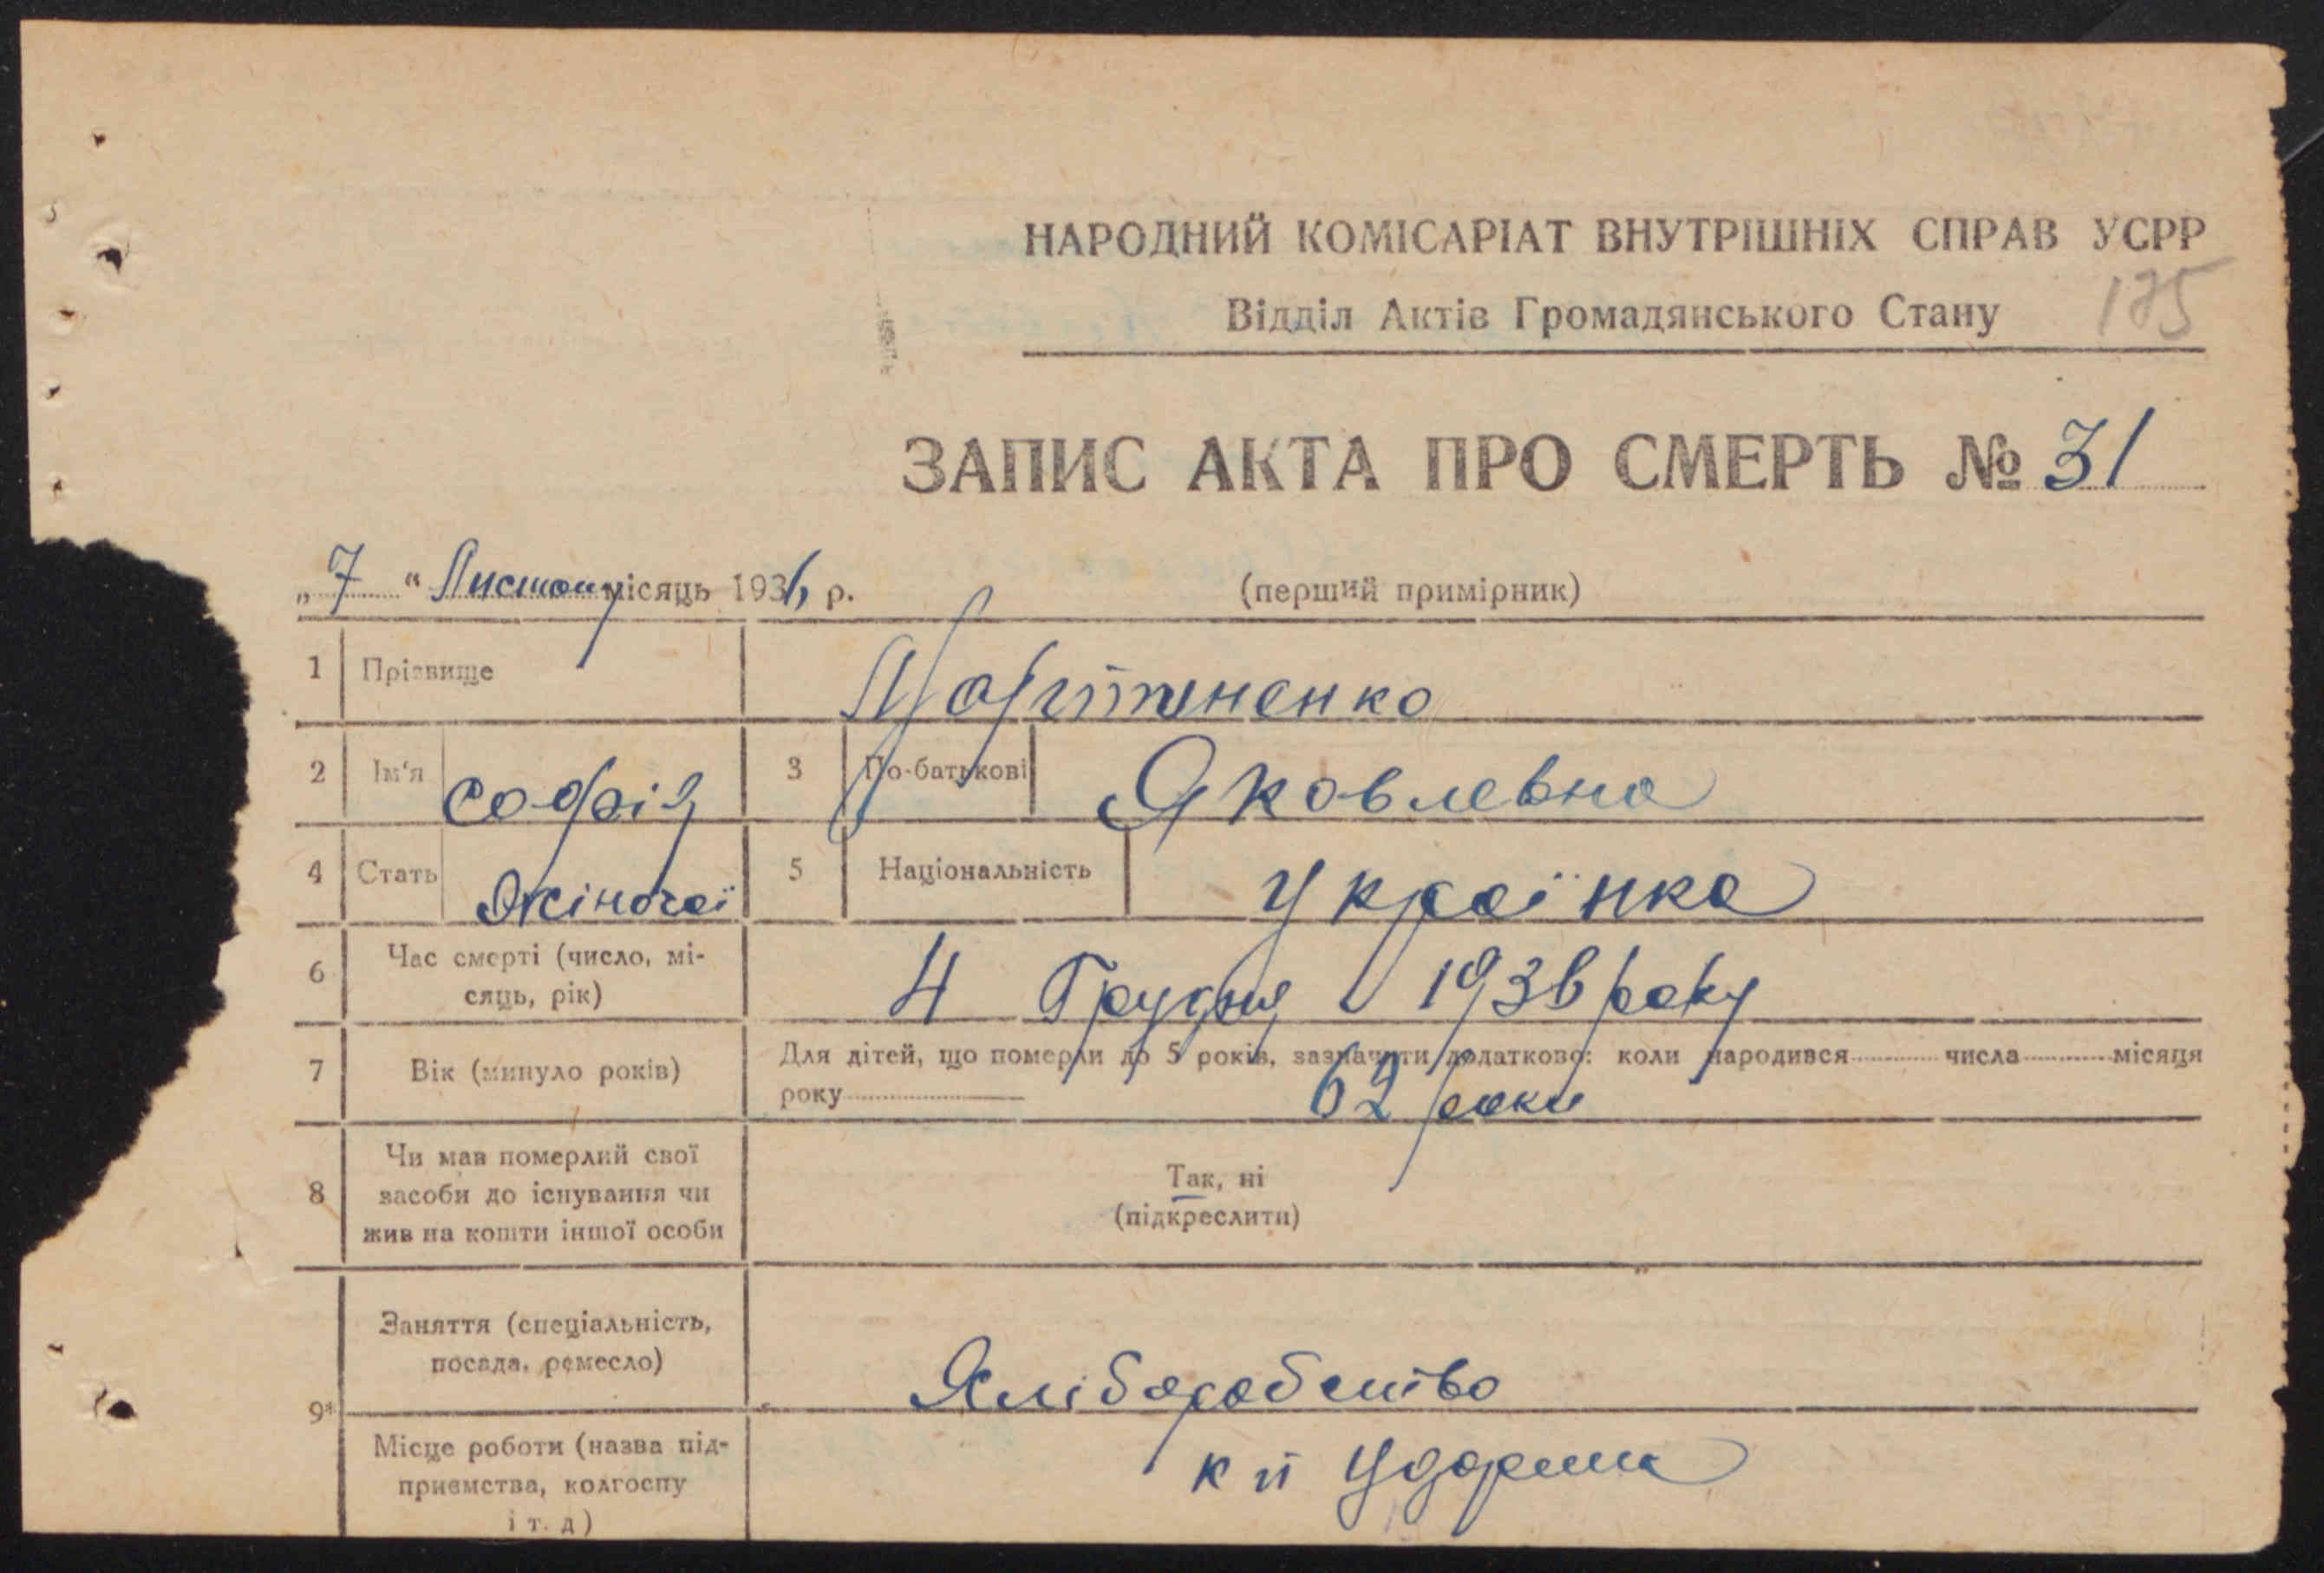 НАРОДНИЙ КОМІСАРІАТ ВНУТРІШНІХ СПРАВ УСРР
Відділ Актів Громадянського Стану 175
ЗАПИС АКТА ПРО СМЕРТЬ № 31
„7“ Листопу місяць 1936 р. (перший примірник)
1 Прізвище
2 Ім'я Софія 3 По-батькові Яковлевна
4 Стать Жіночої 5 Національність Українка
6 Час смерті (число, мі-
сяць, рік) 4 Грудня 1936 року
7 Вік (минуло років) Для дітей, що померли до 5 років, зазначити додатково: коли народився числа місяця
року 62 роки
8 Чи мав померлий свої
засоби до існування чи
жив на кошти іншої особи
Так, ні
(підкреслити)
9*
Заняття (спеціальність,
посада, ремесло) Хліборобство
Місце роботи (назва під-
приємства, колгоспу
і т. д)